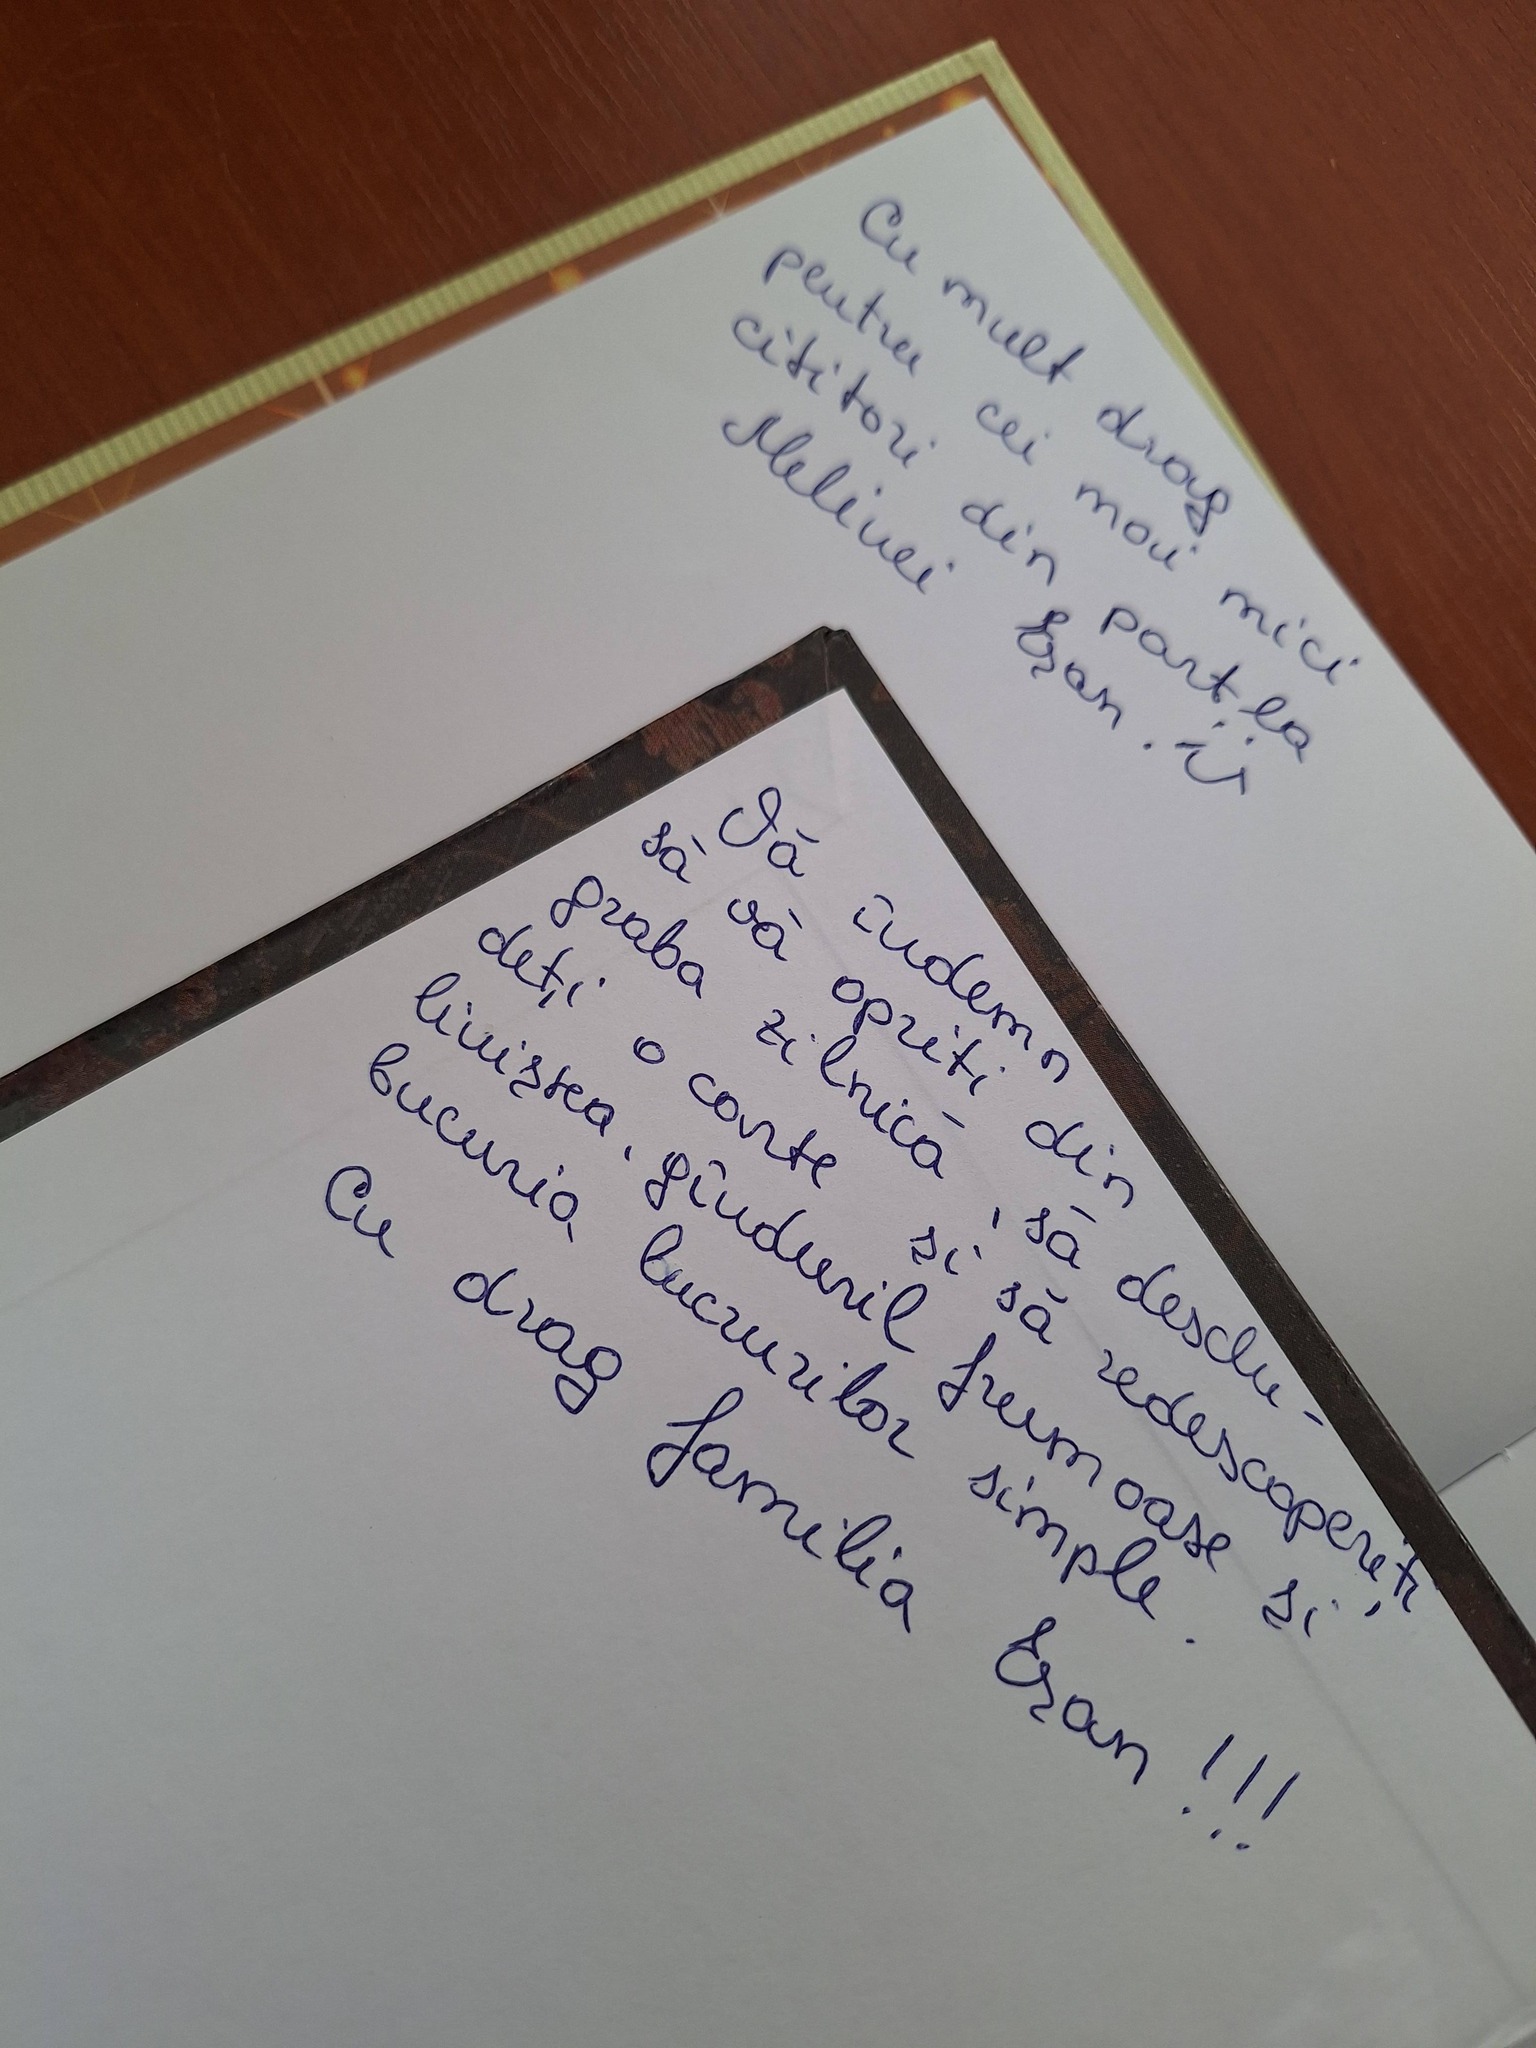 Cu mult drag
pentru cei mai mici
cititori din partea
Melinei Eșan. ü
Vă îndemn
să vă opriti din
graba zilnică, să deschi-
deți o carte și să redescoperiți
liniștea, gînduril frumoase și
bucuria lucrurilor simple.
Cu drag familia Eșan!!!